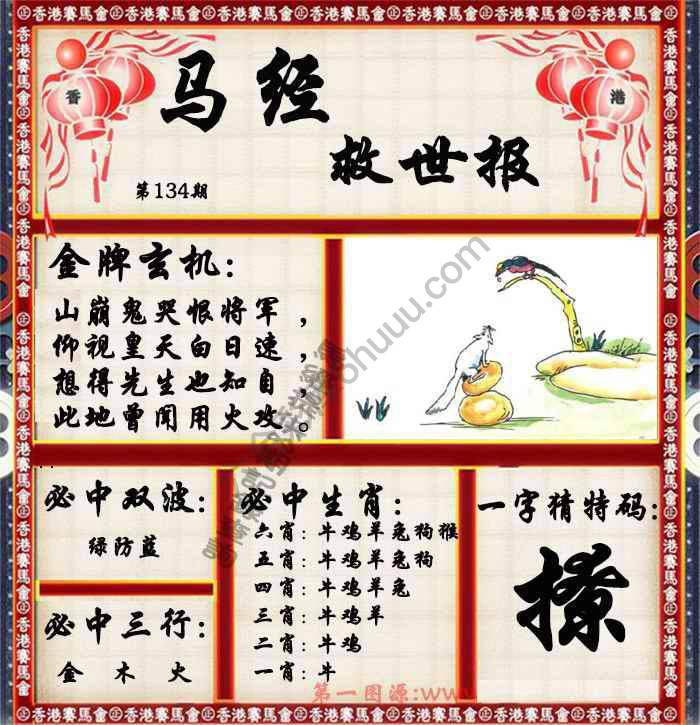 ㊣香港賽馬會㊣香港賽馬會㊣香港賽馬會㊣香港賽馬會㊣香港賽馬會㊣香港賽馬會㊣
香
港
马经
救世报
第134期
金牌玄机：
山崩鬼哭恨将军，
仰视皇天白日速，
想得先生也知自，
此地曾闻用火攻。
必中双波：
绿防蓝
必中三行：
金 木 火
必中生肖：
六肖：牛鸡羊兔狗猴
五肖：牛鸡羊兔狗
四肖：牛鸡羊兔
三肖：牛鸡羊
二肖：牛鸡
一肖：牛
一字猜特码：
撩
第一图源:www